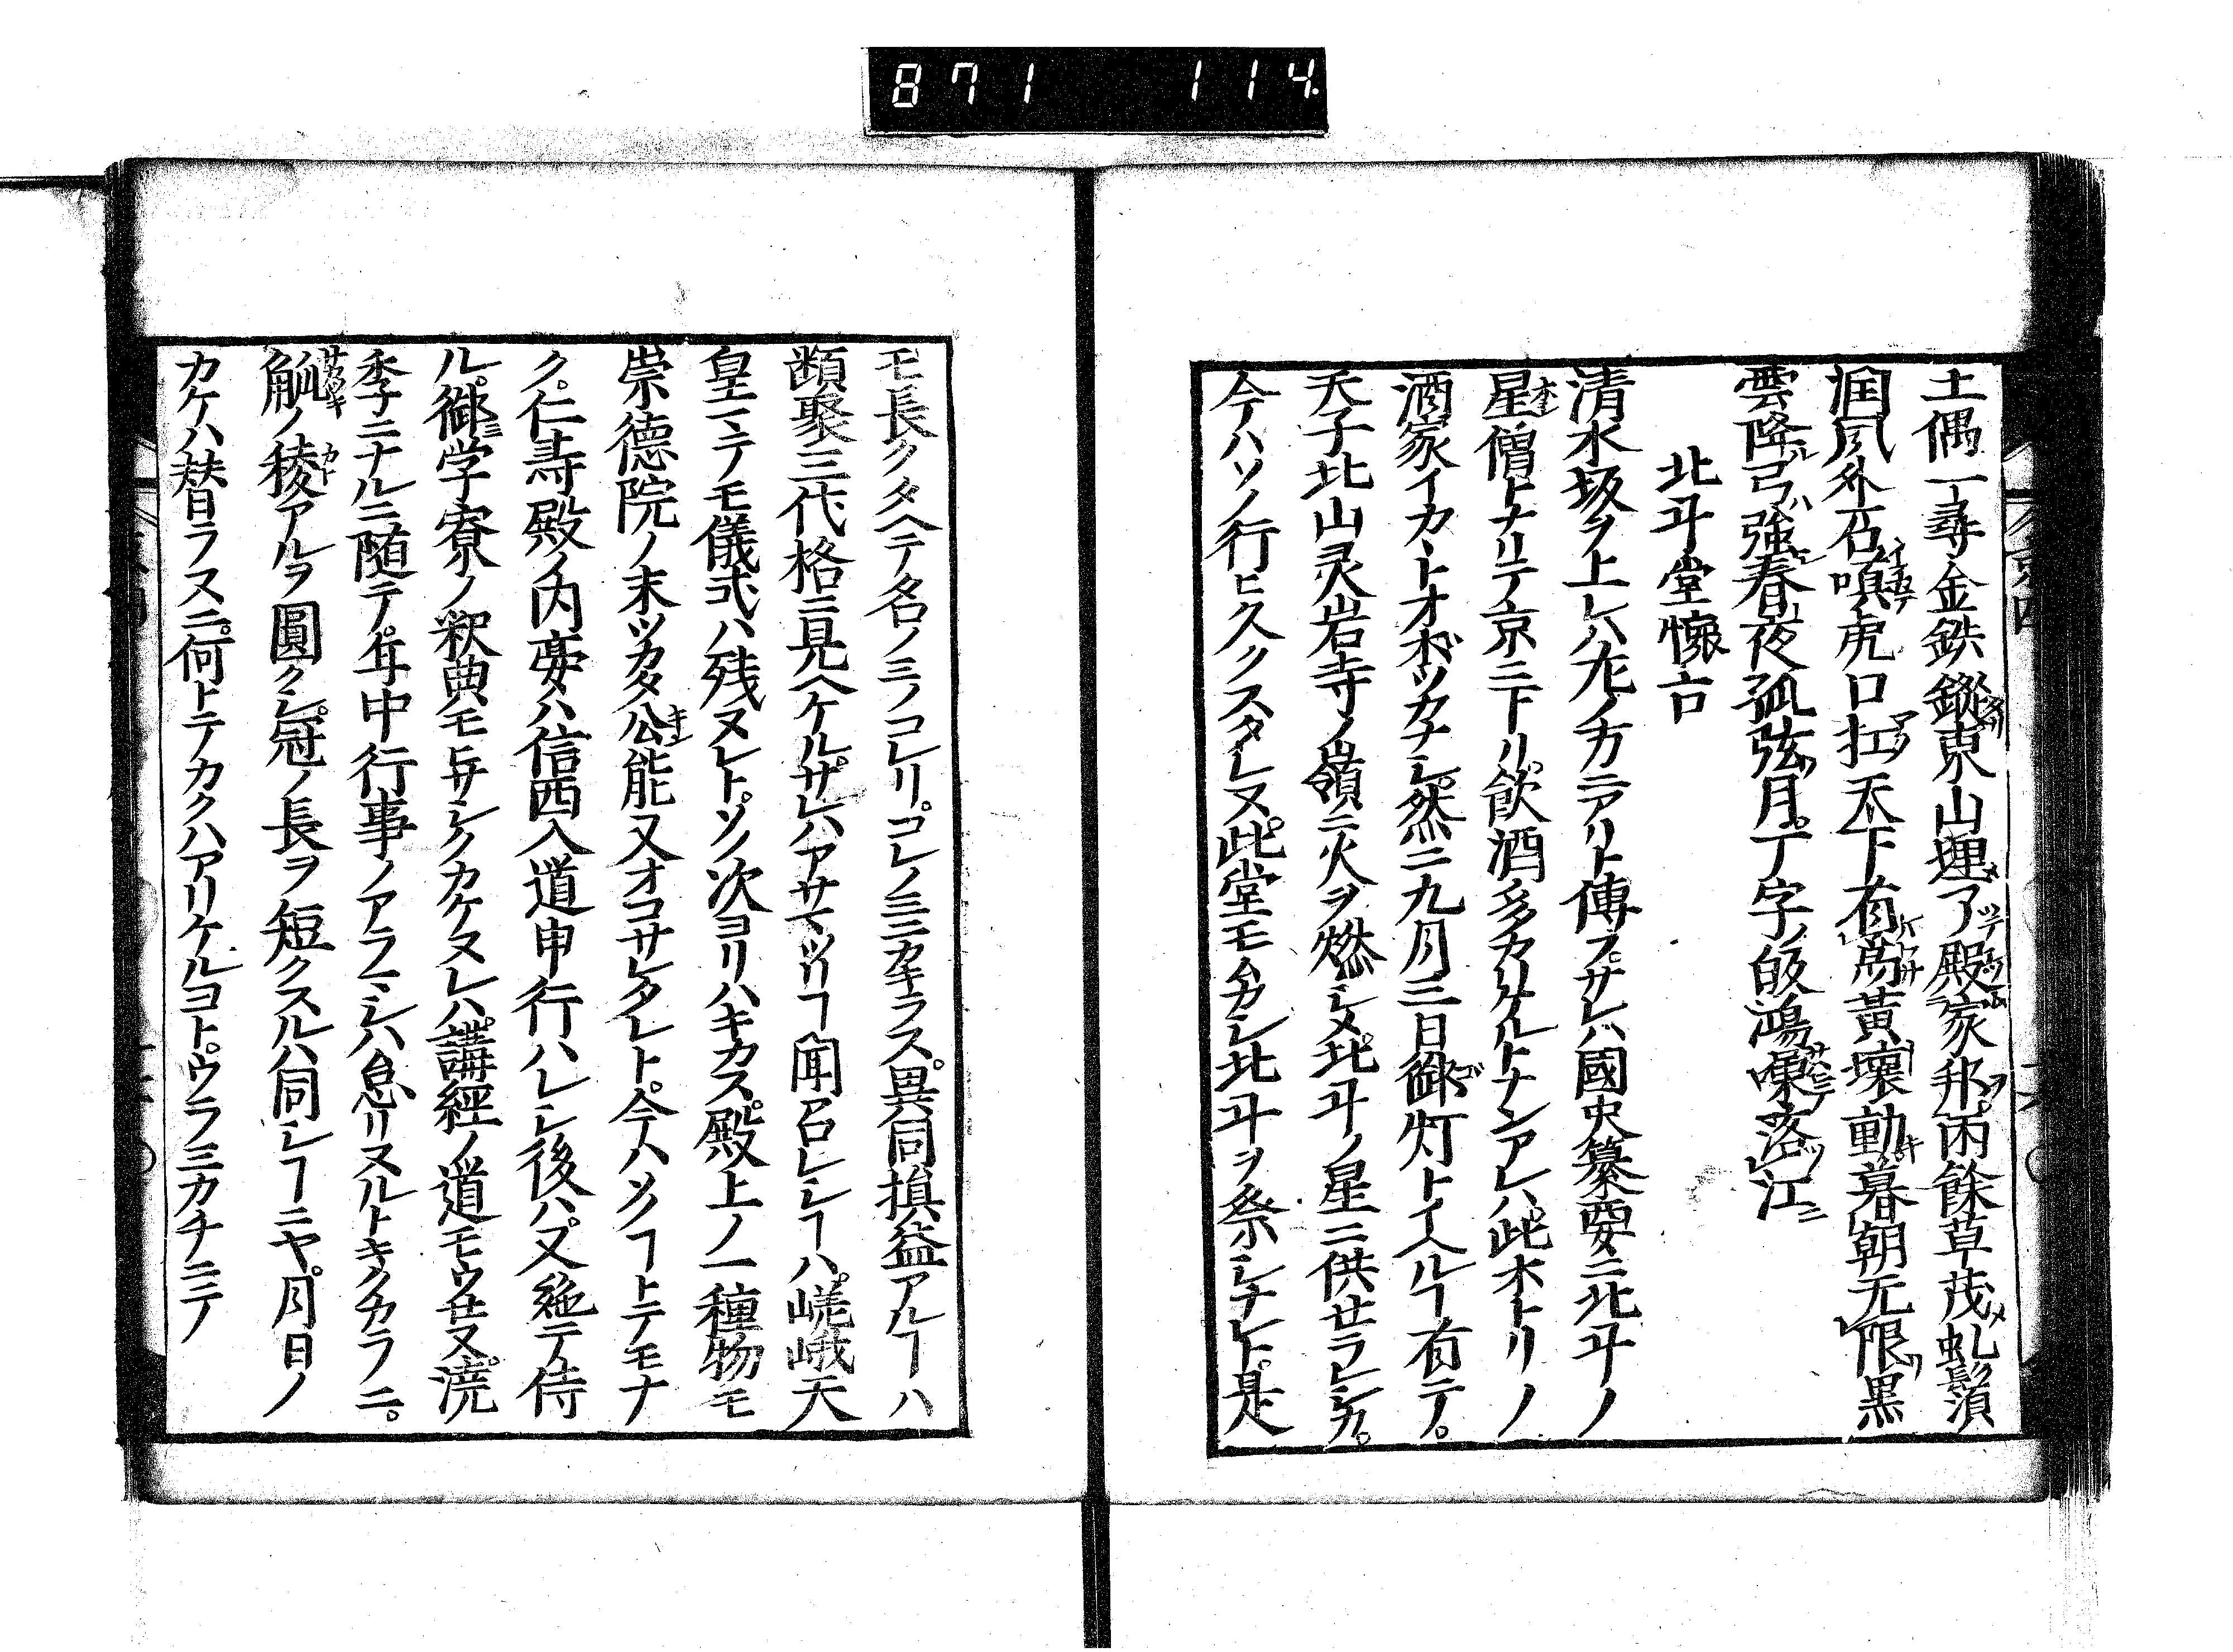 871 114
土偶一尋金鉄鏦東山埋了殿家邦雨餘草茂虬鬚
潤風外石嗔虎口扛天下有為黄壤動暮朝无限黒
雲降弓強春夜孤弦月丁字皈鴻嗛落江
北斗堂懷古
清水坂ヲ上レハ左ノ方ニアリト傳フ。サレハ國史纂要ニ北斗ノ
星僧トナリテ京ニ下ル。飲酒多カリケルトナンアレハ。此木トリノ
酒家イカヽトオボツカナシ。然ニ九月三日御灯トイヘルヿ有テ。
天子北山灵岩寺ノ嶺ニ火ヲ燃シメ。北斗ノ星ニ供セラレシカ。
今ハソノ行ヒ久クスタレヌ。此堂モムカシ北斗ヲ祭シナレト。是
モ長クタヘテ名ノミノコレリ。コレノミニカキラス。異同損益アルヿハ
類聚三代格ニ見ヘケル。サレハアサマツリコヿ聞召レシヿハ。嵯峨天
皇マテモ儀式ハ残ヌレト。ソノ次ヨリハキカス。殿上ノ一種物モ
崇徳院ノ末ツカタ公能又オコサレタレト。今ハソノヿトテモナ
ク。仁寿殿ノ内宴ハ信西入道申行ハレシ後ハ。又絶テ侍
ル。御学寮ノ釈典モ与サシクカケヌレハ。講經ノ道モウセヌ。澆
季ニナルニ随テ。年中行事ノアラマシハ怠リヌルトキクカラニ。
觚ノ稜アルヲ圓クシ。冠ノ長ヲ短クスルハ同シヿニヤ。月日ノ
カケハ替ラヌニ。何トテカクハアリケルヨト。ウラミカチニミノ